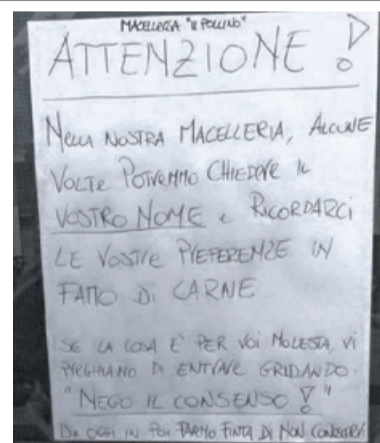 MACELLERIA "IL POLLINO"
ATTENZIONE!
NELLA NOSTRA MACELLERIA, ALCUNE
VOLTE POTREMMO CHIEDERE IL
VOSTRO NOME E RICORDARCI
LE VOSTRE PREFERENZE IN
FATTO DI CARNE
SE LA COSA È PER VOI MOLESTA, VI
PREGHIAMO DI ENTRARE GRIDANDO.
"NEGO IL CONSENSO!"
DA OGGI IN POI FAREMO FINTA DI NON CONOSCERVI